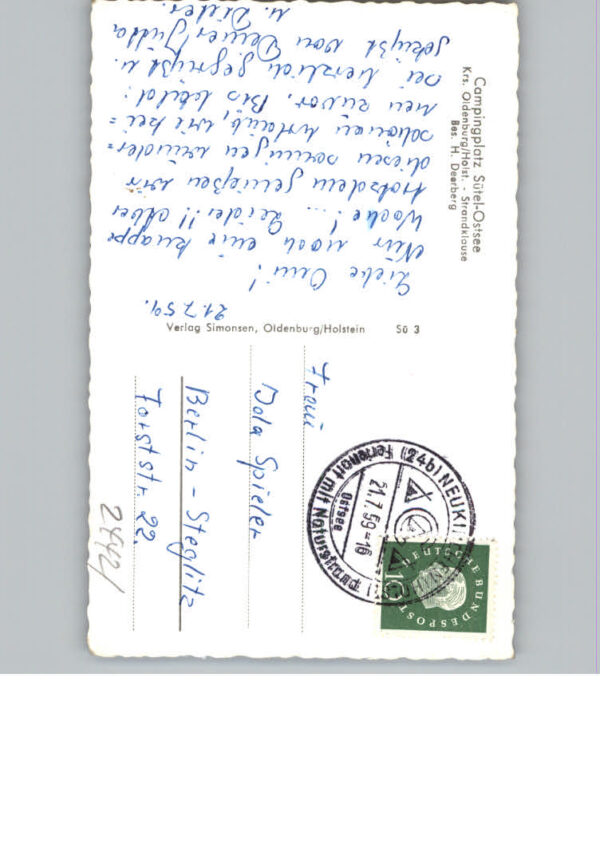 Campingplatz Sütel-Ostsee
Krs. Oldenburg/Holst. - Strandklause
Bes. H. Deerberg
21.7.59.
Liebe Omi!
Nur noch eine knappe
Woche! ... Leider!! Aber
trotzdem genießen wir
diesen sonnigen wunder=
schönen Urlaub, wie kei=
nen zuvor. Bis bald!
Sei herzlich gegrüßt u.
geküßt von Deiner Jutta
u. Dieter
Verlag Simonsen, Oldenburg/Holstein Sü 3
Frau
Dola Spieler
Berlin - Steglitz
Forststr. 22.
2442/
(24b) NEUKI
Ferienort mit Naturstrand
Ostsee
21.7.59-16
DEUTSCHE BUNDESPOST
10